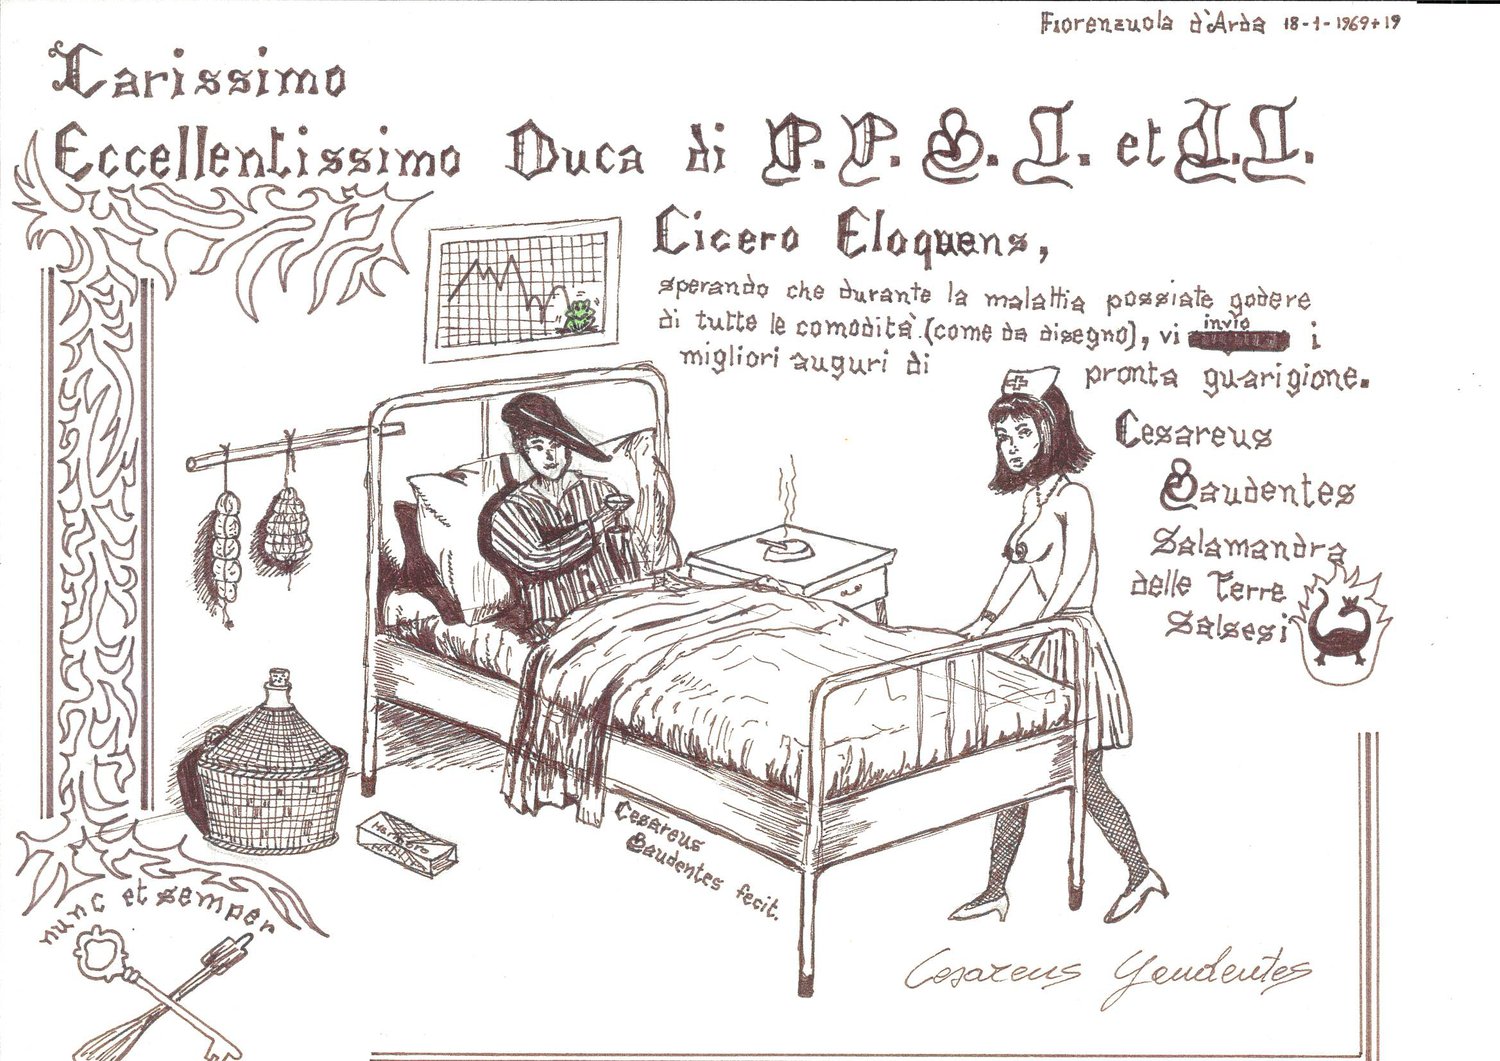 Fiorenzuola d'Arda 18-1-1969+19
Carissimo
Eccellentissimo Duca di P.P.G.I. et I.I.
Cicero Eloquens,
sperando che durante la malattia possiate godere
di tutte le comodità (come da disegno), vi invio i
migliori auguri di pronta guarigione.
Cesareus
Gaudentes
Salamandra
delle Terre
Salsesi
Cesareus
Gaudentes fecit.
nunc et semper
Cesareus Gaudentes